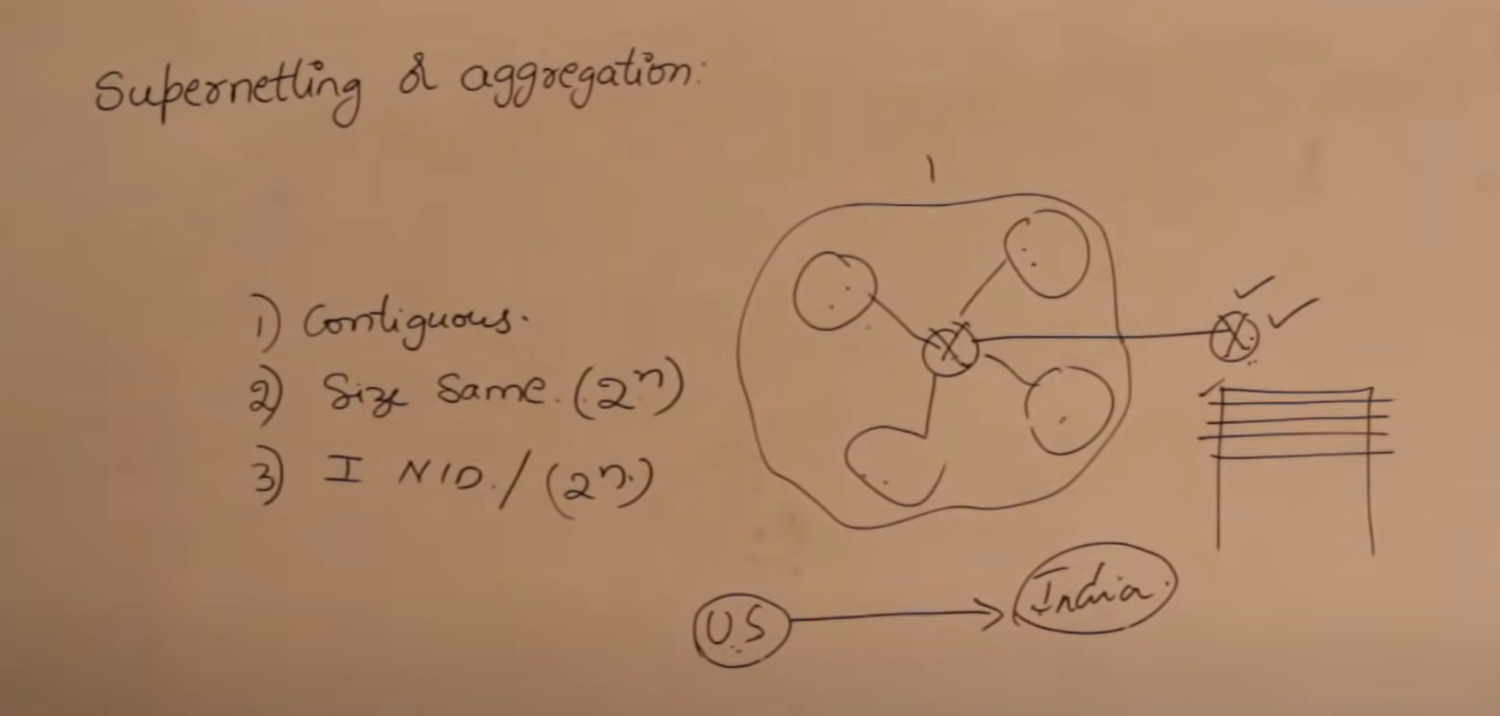 Supernetting & aggregation:
1
1) Contiguous.
2) Size Same. (2ⁿ)
3) I NID. / (2ⁿ.)
US
India.